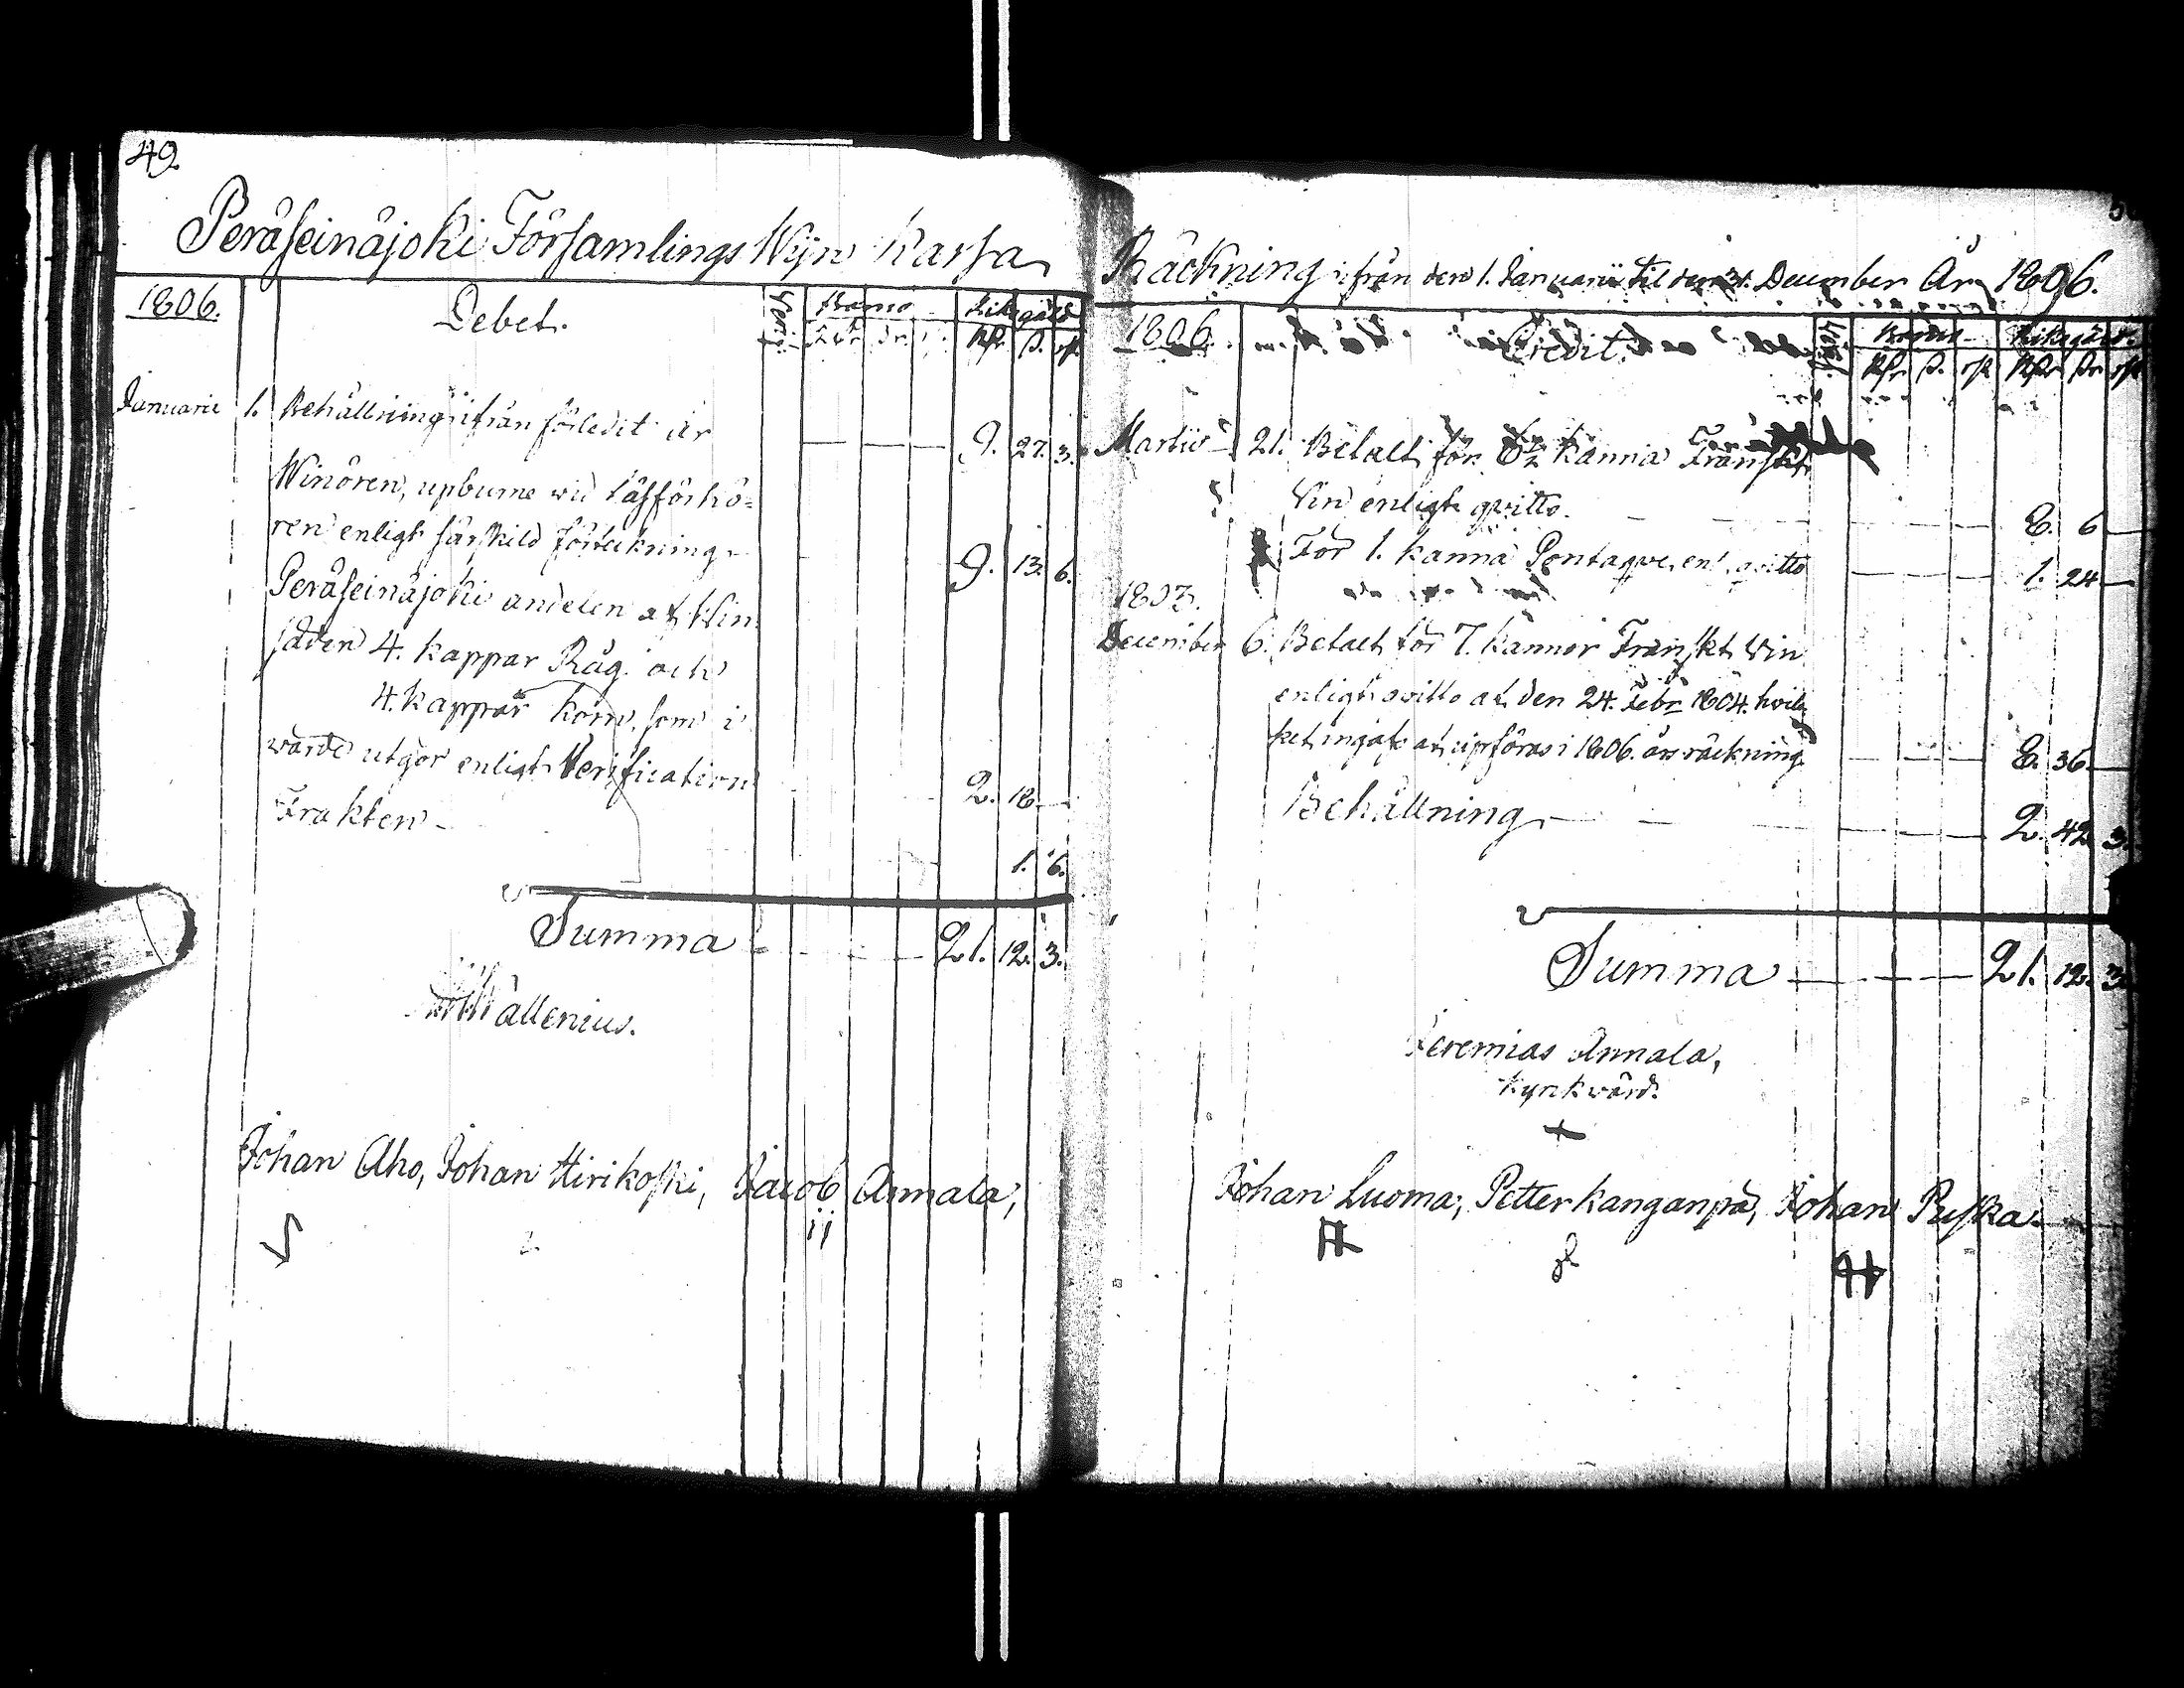 49
Peräseinäjoki Församlings Wijn Kassa
1806.
Debet.
Verif.
Banco
Riksgäld
Rdr ß. rst
Januarii 1. Behållning ifrån förledit år 9. 27. 3.
Winören, upburne wid Läsförhö-
ren enligt särskild förtekning 9. 13. 6.
Peräseinäjoki andelen af Win
säden 4. kappar Råg och
4. kappar Korn, som i
wärde utgör enligt Verification 2. 18.
Frakten 1. 6.
Summa 21. 12. 3.
Wallenius.
Johan Aho, Johan Hirikoski, Jacob Annala,
Räckning ifrån den 1. Januarii til den 31. December År 1806.
1806.
Credit.
Verif.
Banco
Riksgäld.
Rdr ß. rst Rdr ß. rst
Martii 21. Betalt för 5½ kanna Franskt
Vin enligt qvitto. 8. 6
För 1. kanna Pontaque, enl. qvitto 1. 24
1803.
December 6. Betalt för 7. kannor Franskt Vin
enligt qvitto af den 24. Febr 1804. hvil-
ket ingår at upföras i 1806. års räckning 8. 36.
Behållning 2. 42. 3.
Summa 21. 12. 3
Jeremias Annala,
kyrkvärd.
Johan Luoma, Petter Kanganpä, Johan Puska